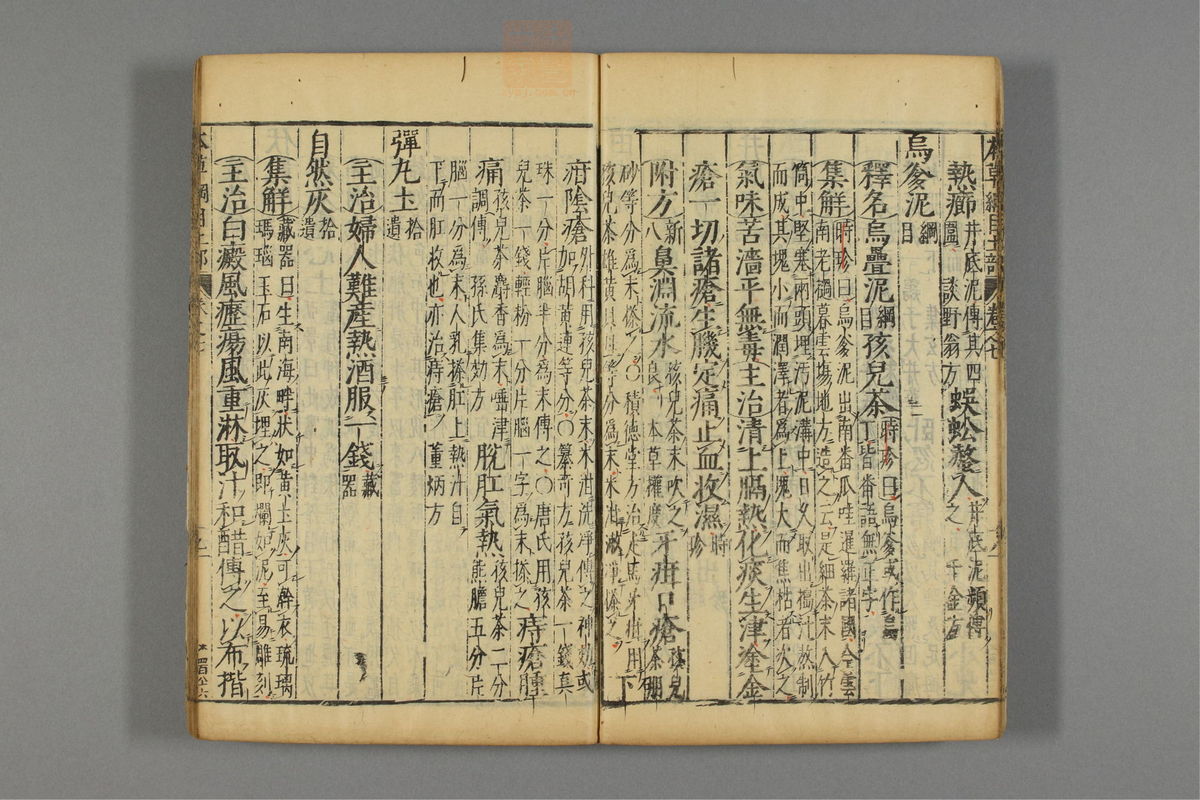 本草綱目土部 卷之七
熱癤 井底泥傅其四圍 談野翁方 蜈蚣螫人 井底泥頻傅之 千金方
烏爹泥 綱目
釋名 烏疊泥 綱目 孩兒茶 時珍曰烏爹或作
丁皆番語無正字
集解 時珍曰烏爹泥出南番爪哇暹羅諸國今雲
南老撾暮雲塲地方造之云是細茶末入竹
筒中堅塞兩頭埋汚泥溝中日久取出搗汁熬制
而成其塊小而潤澤者爲上塊大而焦枯者次之
氣味苦濇平無毒主治清上膈熱化痰生津塗金
瘡一切諸瘡生肌定痛止血收濕 時珍
附方 新八 鼻淵流水 孩兒茶末吹之良 本草權度 牙疳口瘡 孩兒茶硼
砂等分爲末搽 ○積德堂方治走馬牙疳用
孩兒茶雄黃貝母等分爲末米泔漱淨搽之 下
疳陰瘡 外科用孩兒茶末米泔洗淨傅之神効或
加胡黃連等分○纂奇方孩兒茶一錢真
珠一分片腦半分爲末傅之○唐氏用孩
兒茶一錢輕粉一分片腦一字爲末搽之 痔瘡腫
痛 孩兒茶麝香爲末唾津
調傅 孫氏集効方 脫肛氣熱 孩兒茶二分
熊膽五分片
腦一分爲末人乳搽肛上熱汁自
下而肛收也亦治痔瘡 董炳方
彈丸土 拾遺
主治婦人難產熱酒服一錢 藏器
自然灰 拾遺
集解 藏器曰生南海畔狀如黃土灰可澣衣琉璃
瑪瑙玉石以此灰埋之即爛如泥至易雕刻
主治白癜風癧瘍風重淋取汁和醋傅之以布揩
本草綱目土部 卷之七